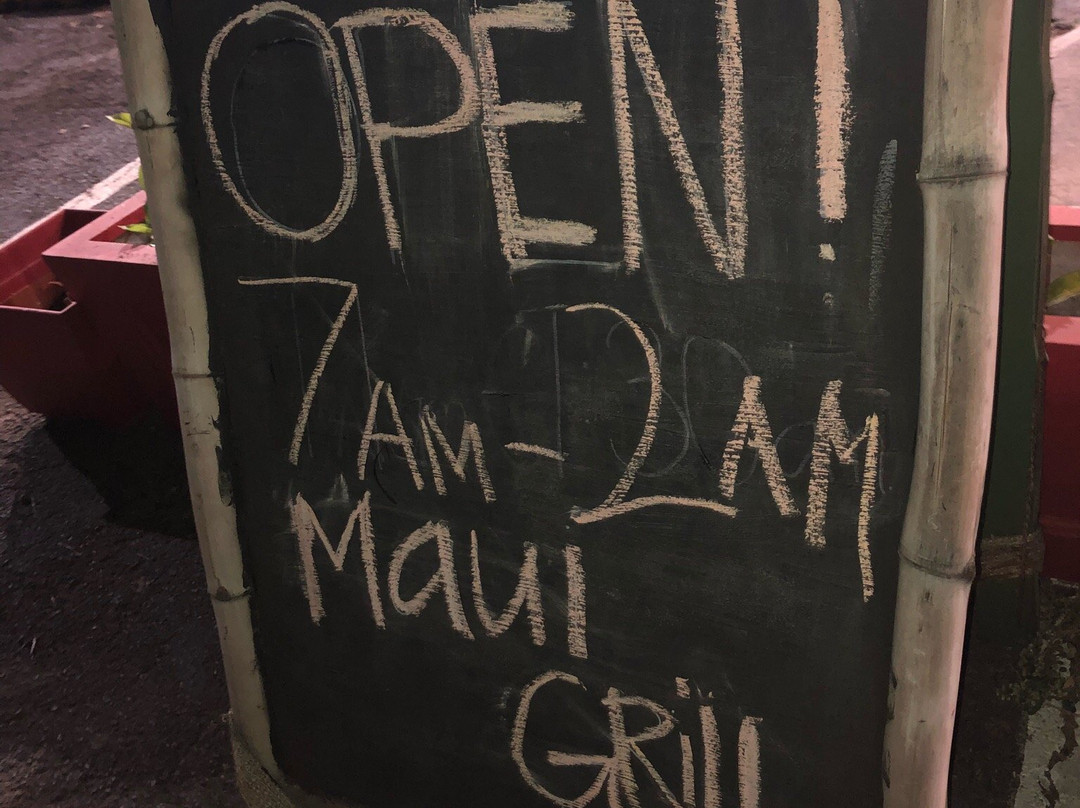 OPEN!
7AM-2AM
Maui
GRill